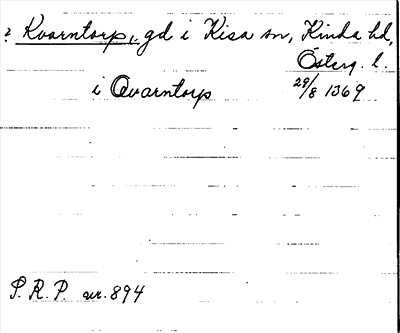 ? Kvarntorp, gd i Kisa sn, Kinda hd,
Österg. l.
i Qvarntorp 29/8 1369
P. R. P. nr. 894